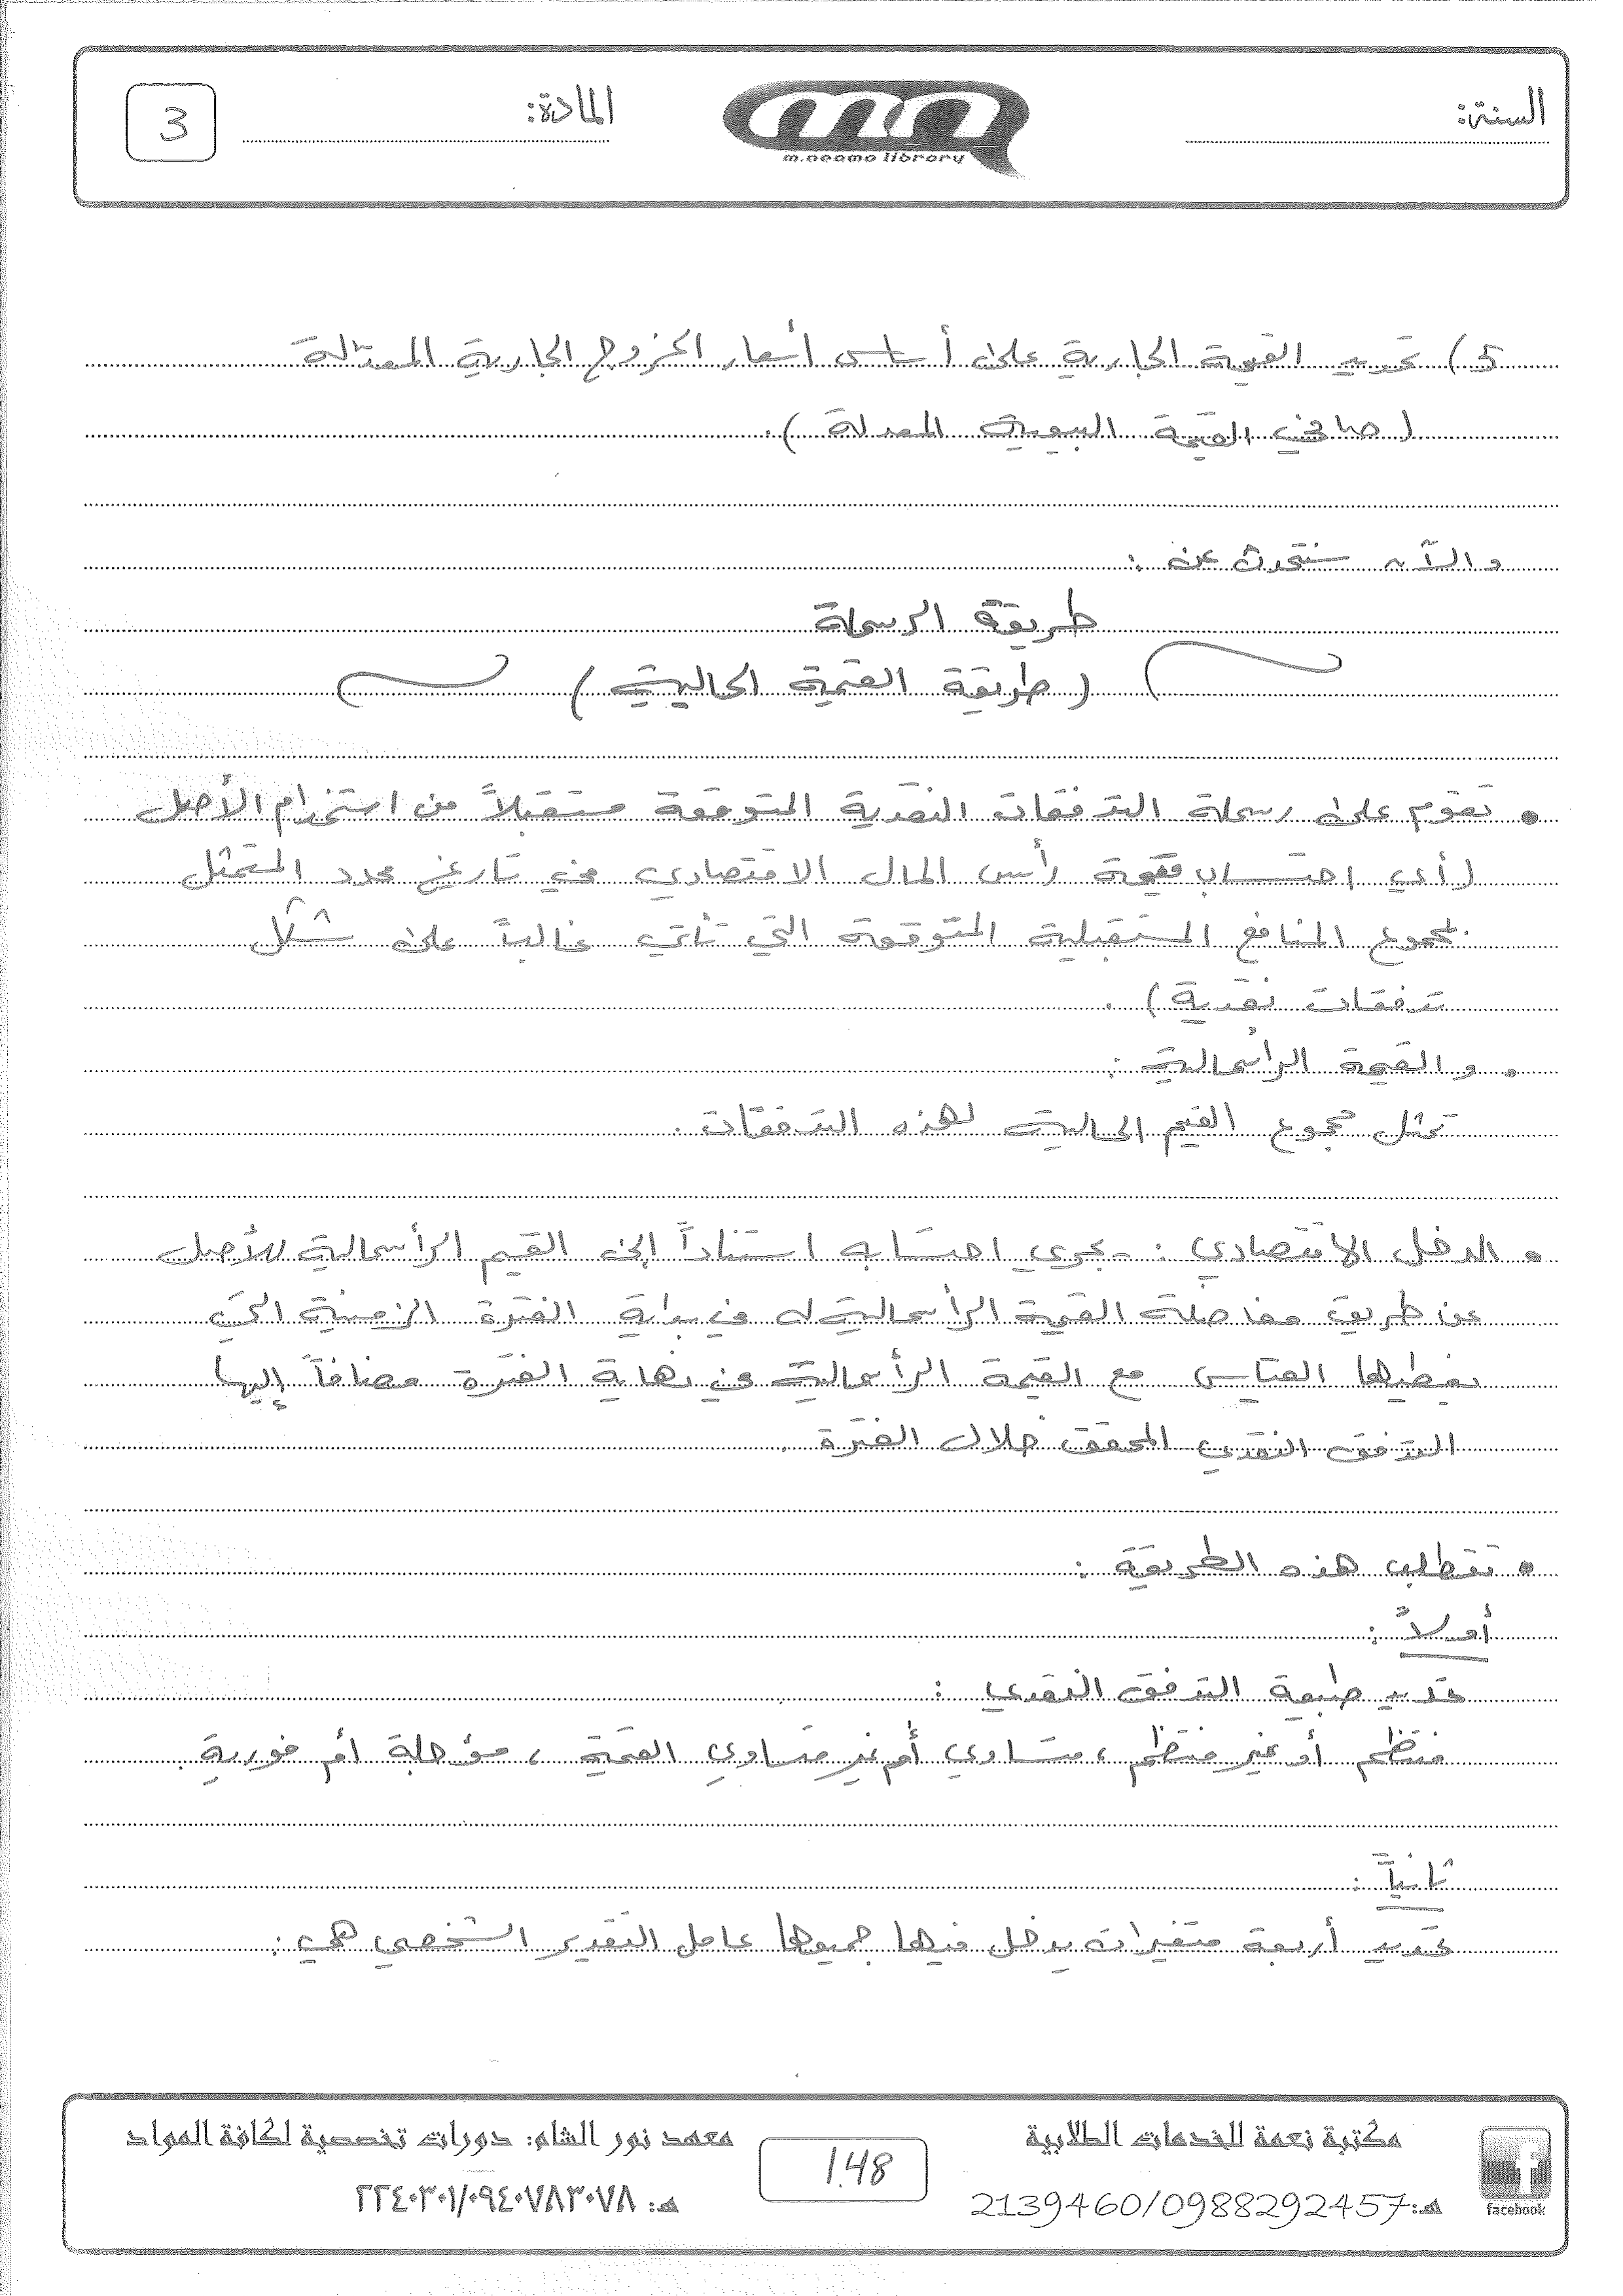 السنة:
m.neama library
المادة:
3
5) تحديد القيمة الجارية على أساس أسعار الخروج الجارية المعدّلة
(صافي القيمة البيعية المعدلة).
والآن سنتحدث عن:
طريقة الرسملة
(طريقة القيمة الحالية)
• تقوم على رسملة التدفقات النقدية المتوقعة مستقبلاً من استخدام الأصل
(أي احتساب قيمة رأس المال الاقتصادي في تاريخ محدد المتمثل
بمجموع المنافع المستقبلية المتوقعة التي تأتي غالباً على شكل
تدفقات نقدية).
• والقيمة الرأسمالية:
تمثل مجموع القيم الحالية لهذه التدفقات.
• الدخل الاقتصادي: يجري احتسابه استناداً إلى القيم الرأسمالية للأصل
عن طريق مفاضلة القيمة الرأسمالية له في بداية الفترة الزمنية التي
يغطيها القياس مع القيمة الرأسمالية في نهاية الفترة مضافاً إليها
التدفق النقدي المحقق خلال الفترة.
• تتطلب هذه الطريقة:
أولاً:
تحديد طبيعة التدفق النقدي:
منتظم أو غير منتظم، متساوي أم غير متساوي القيمة، مؤجلة أم فورية.
ثانياً:
تحديد أربعة متغيرات يدخل فيها جميعها عامل التقدير الشخصي هي:
مكتبة نعمة للخدمات الطلابية
معهد نور الشام: دورات تخصصية لكافة المواد
148
هـ: 2139460/0988292457
هـ: ٢٢٤٠٣٠١/٠٩٤٠٧٨٣٠٧٨
facebook